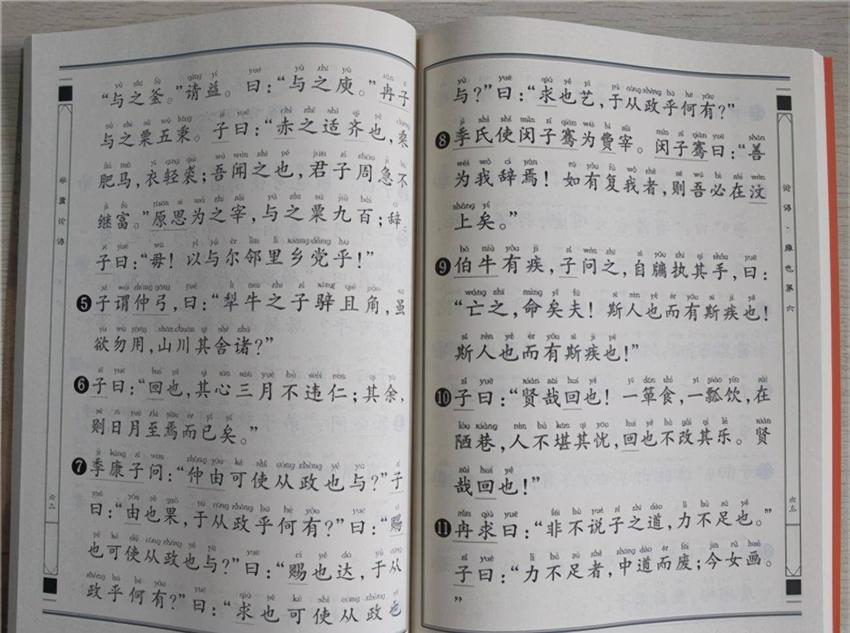 “与之釜。”请益。曰：“与之庾。”冉子
与之粟五秉。子曰：“赤之适齐也，乘
肥马，衣轻裘；吾闻之也，君子周急不
继富。”原思为之宰，与之粟九百；辞。
子曰：“毋！以与尔邻里乡党乎！”
❺子谓仲弓，曰：“犁牛之子骍且角，虽
欲勿用，山川其舍诸？”
❻子曰：“回也，其心三月不违仁；其余，
则日月至焉而已矣。”
❼季康子问：“仲由可使从政也与？”子
曰：“由也果，于从政乎何有？”曰：“赐
也可使从政也与？”曰：“赐也达，于从
政乎何有？”曰：“求也可使从政也
学篇论语
六二
与？”曰：“求也艺，于从政乎何有？”
❽季氏使闵子骞为费宰。闵子骞曰：“善
为我辞焉！如有复我者，则吾必在汶
上矣。”
❾伯牛有疾，子问之，自牖执其手，曰：
“亡之，命矣夫！斯人也而有斯疾也！
斯人也而有斯疾也！”
❿子曰：“贤哉回也！一箪食，一瓢饮，在
陋巷，人不堪其忧，回也不改其乐。贤
哉回也！”
⓫冉求曰：“非不说子之道，力不足也。”
子曰：“力不足者，中道而废；今女画。
”
论语·雍也第六
六三